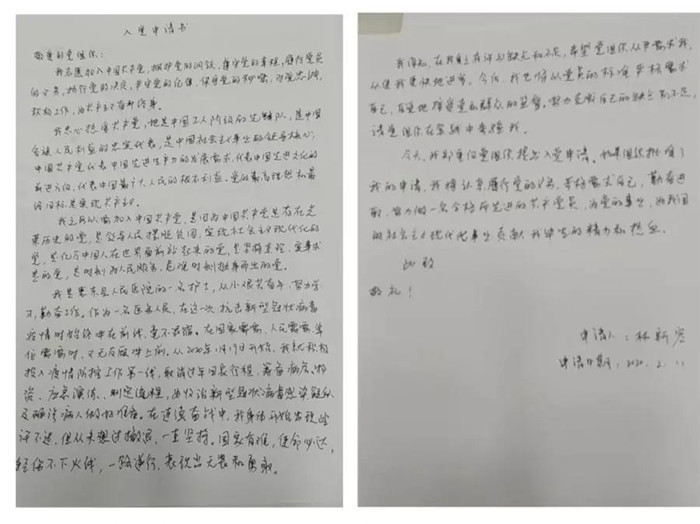 入党申请书
敬爱的党组织：
我志愿加入中国共产党，拥护党的纲领，遵守党的章程，履行党员
的义务，执行党的决定，严守党的纪律，保守党的秘密，对党忠诚，
积极工作，为共产主义奋斗终身。
我衷心热爱共产党，她是中国工人阶级的先锋队，是中国
各族人民利益的忠实代表，是中国社会主义事业的领导核心。
中国共产党代表中国先进生产力的发展要求，代表中国先进文化的
前进方向，代表中国最广大人民的根本利益，党的最高理想和最
终目标是实现共产主义。
我之所以要加入中国共产党，是因为中国共产党是有着光
荣历史的党，是领导人民摆脱贫困，实现社会主义现代化的
党，是亿万中国人在世界面前站起来的党，是坚持真理、实事求
是的党，是时刻为人民服务，危险时刻挺身而出的党。
我是惠东县人民医院的一名护士，从小艰苦奋斗，努力学
习，勤奋工作。作为一名医务人员，在这一次抗击新型冠状病毒
疫情时始终冲在前线，毫不畏惧。在国家需要、人民需要、单
位需要时，义无反顾冲上前。从2020年1月19日开始，我就积极
投入疫情防控工作第一线，取消过年回家行程，筹备病房、物
资、应急演练、制定流程，为收治新型冠状病毒感染疑似
及确诊病人做好准备。在连续奋战中，我身体开始出现
不适，但从未想过撤退，一直坚持。国家有难，使命必达，
轻伤不下火线，一路逆行，表现出无畏和勇敢。
我深知，在我身上存在缺点和不足，希望党组织从严要求我，
从使我更快地进步。今后，我也将以党员的标准严格要求
自己，自觉地接受党和群众的监督，努力克服自己的缺点和不足，
请党组织在实践中考验我。
今天，我郑重向党组织提出入党申请。如果组织批准了
我的申请，我将认真履行党的义务，严格要求自己，勤奋进
取，努力做一名合格而先进的共产党员，为党的事业，为我国
的社会主义现代化事业贡献我毕生的精力和热血。
此致
敬礼！
申请人：林新
申请日期：2020.2.